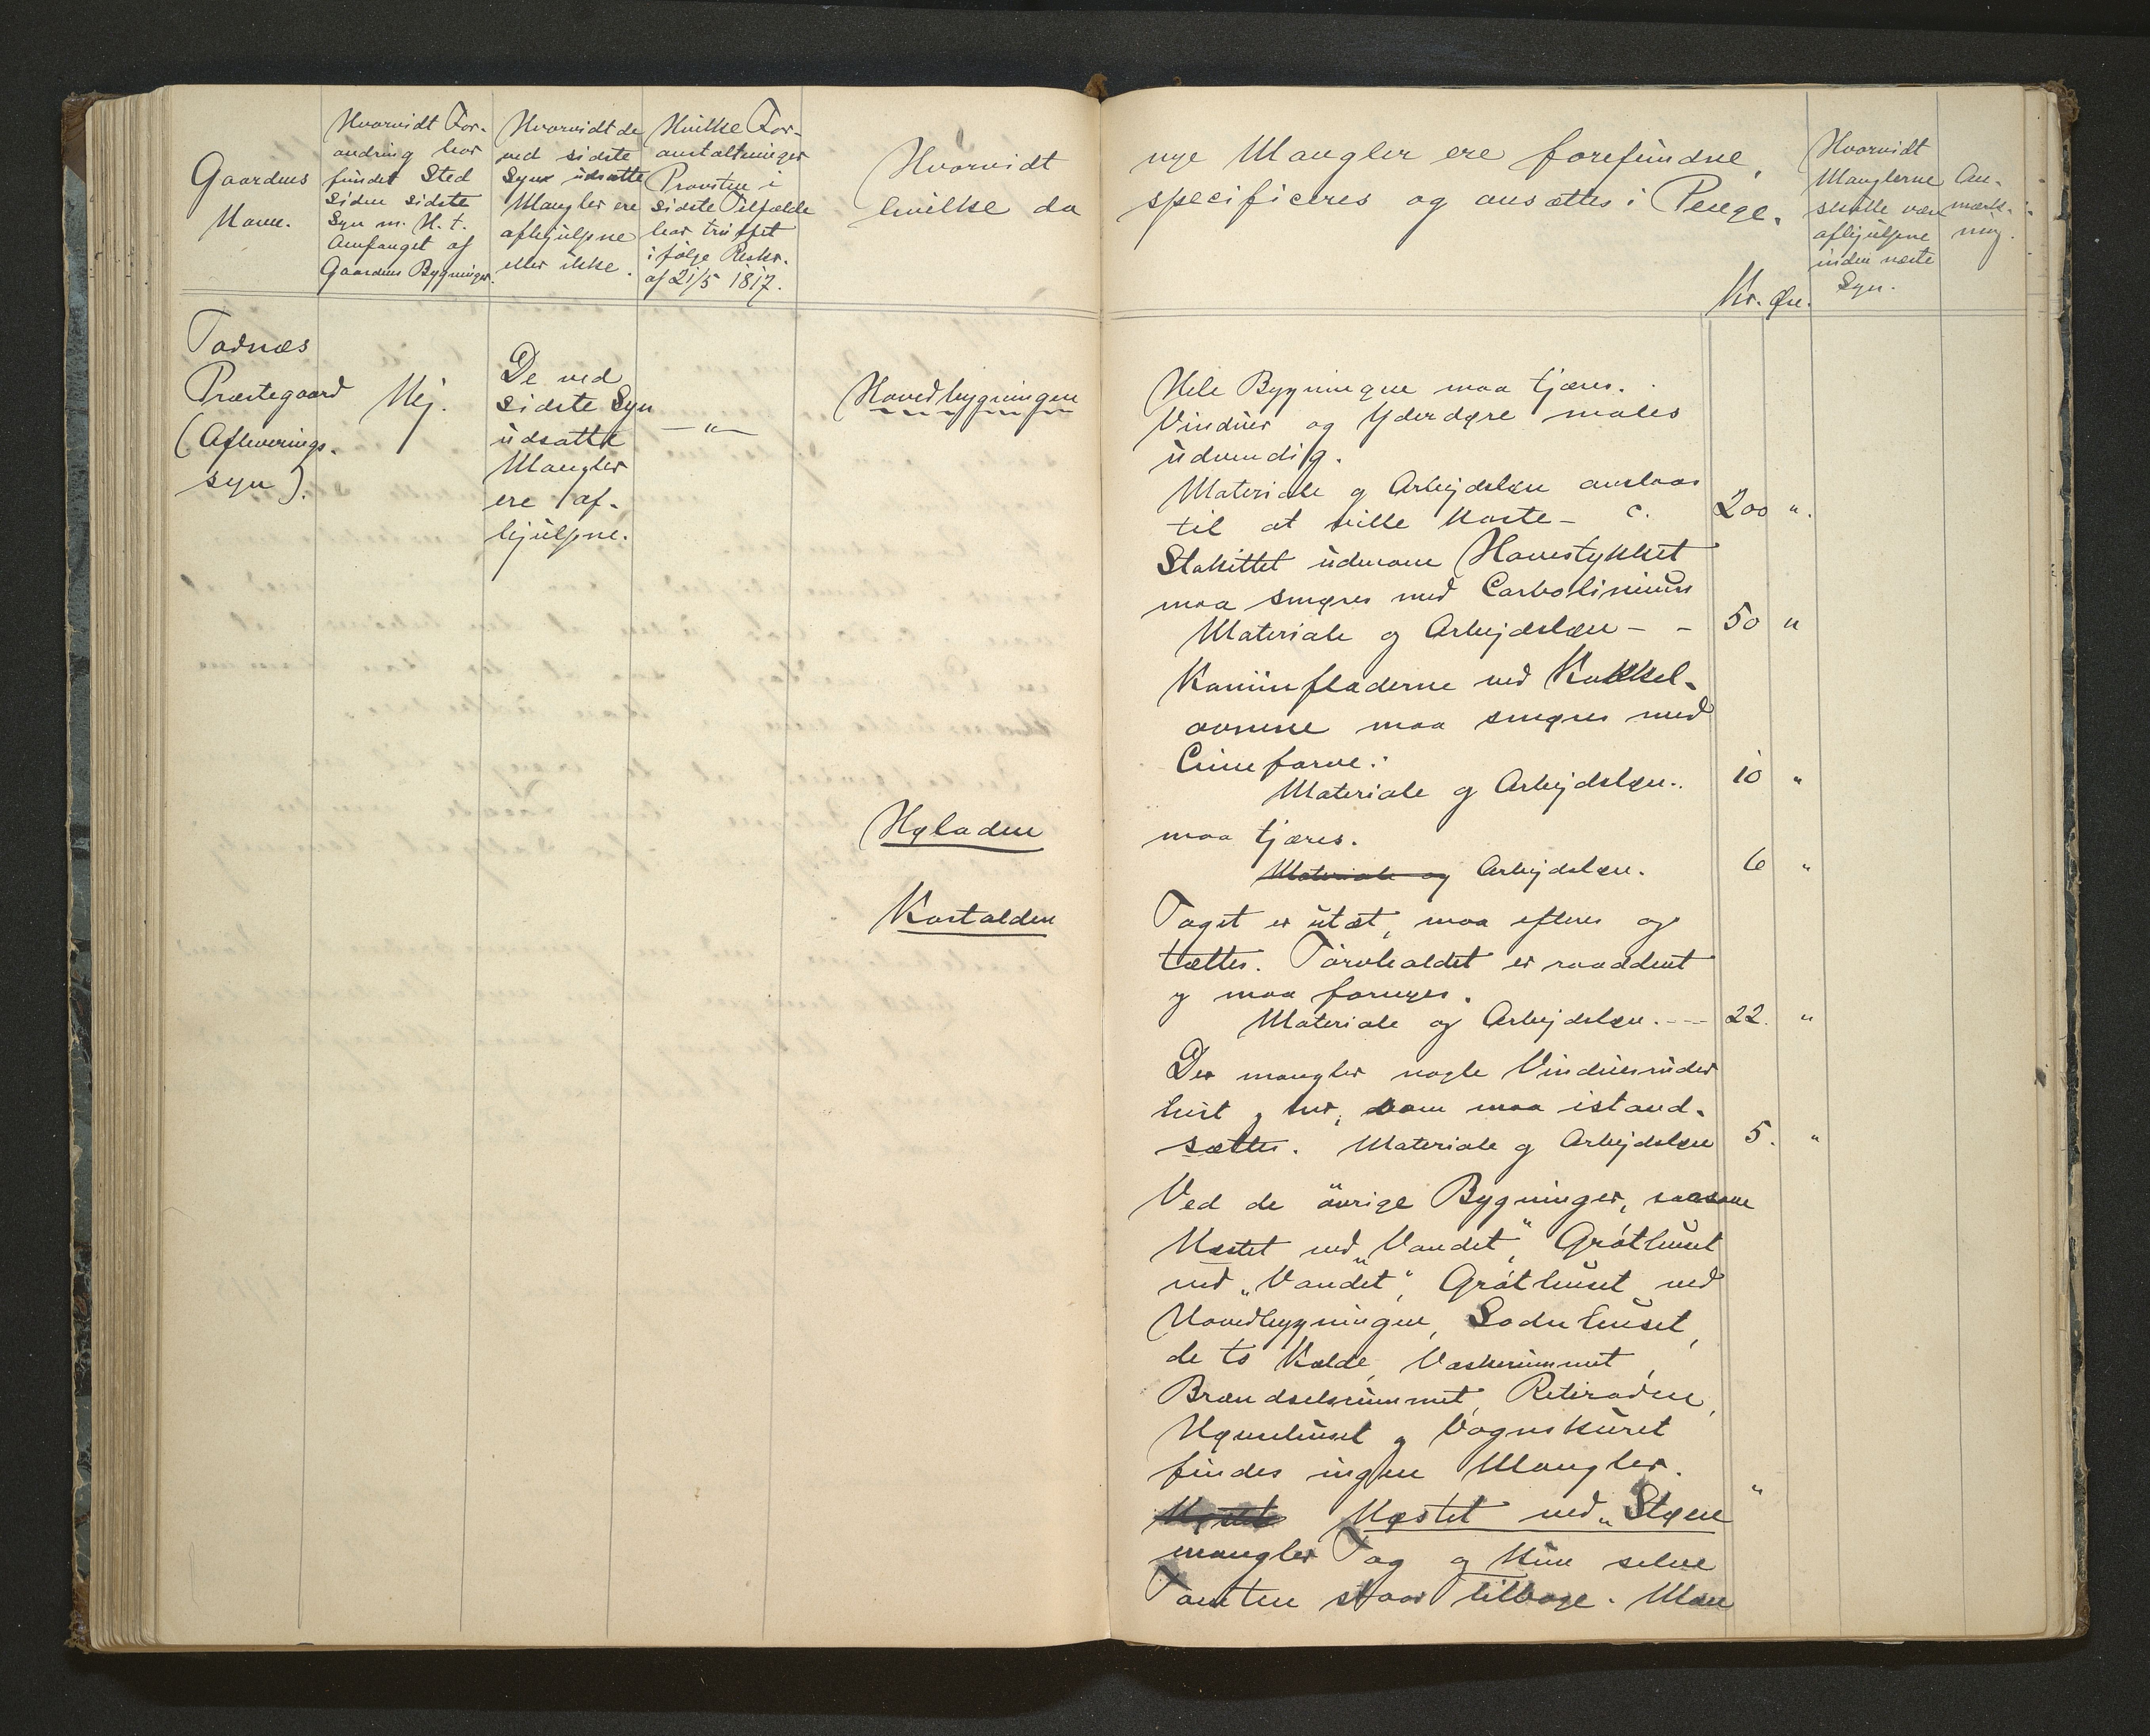 Gaardens
Navn.
Hvorvidt For-
andring har
fundet Sted
siden sidste
Syn m. H. t.
Omfanget af
Gaardens Bygninger.
Hvorvidt de
ved sidste
Syn udsatte
Mangler ere
afhjulpne
eller ikke.
Hvilke For-
anstaltninger
Provsten i
sidste Tilfælde
har truffet
ifølge Reskr.
af 21/5 1817.
Hvorvidt
hvilke da
nye Mangler ere forefundne,
specificeres og ansættes i Penge.
Kr. Øre.
Hvorvidt
Manglerne
skulle være
afhjulpne
inden næste
Syn.
An-
mærk-
ning.
Todnæs
Præstegaard
(Afleverings-
syn).
Nej.
De ved
sidste Syn
udsatte
Mangler
ere af-
hjulpne.
— " —
Hovedbygningen
Hele Bygningen maa tjæres.
Vinduer og Yderdøre males
udvendig.
Materiale og Arbejdsløn anslaas
til at ville koste - c. 200 ".
Stakittet udenom Havestykket
maa smøres med Carbolinium
Materiale og Arbejdsløn - - 50 "
Kaminfladerne ved Kakkel-
ovnene maa smøres med
Limfarve.
Materiale og Arbejdsløn.. 10 "
Høladen
maa tjæres.
Materiale og Arbejdsløn. 6 "
Kostalden
Taget er utæt, maa efterses og
tættes. Tørvhaldet er raaddent
og maa fornyes.
Materiale og Arbejdsløn. --- 22. "
Der mangler nogle Vinduesruder
hist og her, som maa istand-
sættes. Materiale og Arbejdsløn 5. "
Ved de övrige Bygninger, saasom
Nøstet ved „Vandet“, Gróthuset
ved „Vandet“, Gróthuset ved
Hovedbygningen, Sodnhuset,
de to Kælde, Vaskerummet,
Brændselsrummet, Retiraden,
Hønsehuset og Vognskuret
findes ingen Mangler.
Nøstet Nøstet ved „Støene“
mangler Tag og kun selve
Tomten staar tilbage. Man